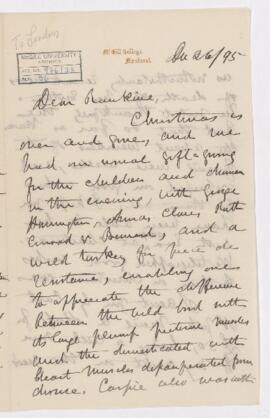 To Leaders
McGILL UNIVERSITY
ARCHIVES
ACC. NO.
REF.
McGill College,
Montreal.
Dec 26/95
Dear Rankine,
Christmas is
over and gone, and we
had our usual gift-giving
for the children and dinner
in the evening, with George
Harrington, Anna, Clare, Ruth
Conrad & Bernard, and a
wild turkey for pièce de
résistance, enabling one
to appreciate the difference
between the wild bird with
its large plump pectoral muscles
and the domesticated with
breast muscles depauperated from
disuse. Carrie also was with